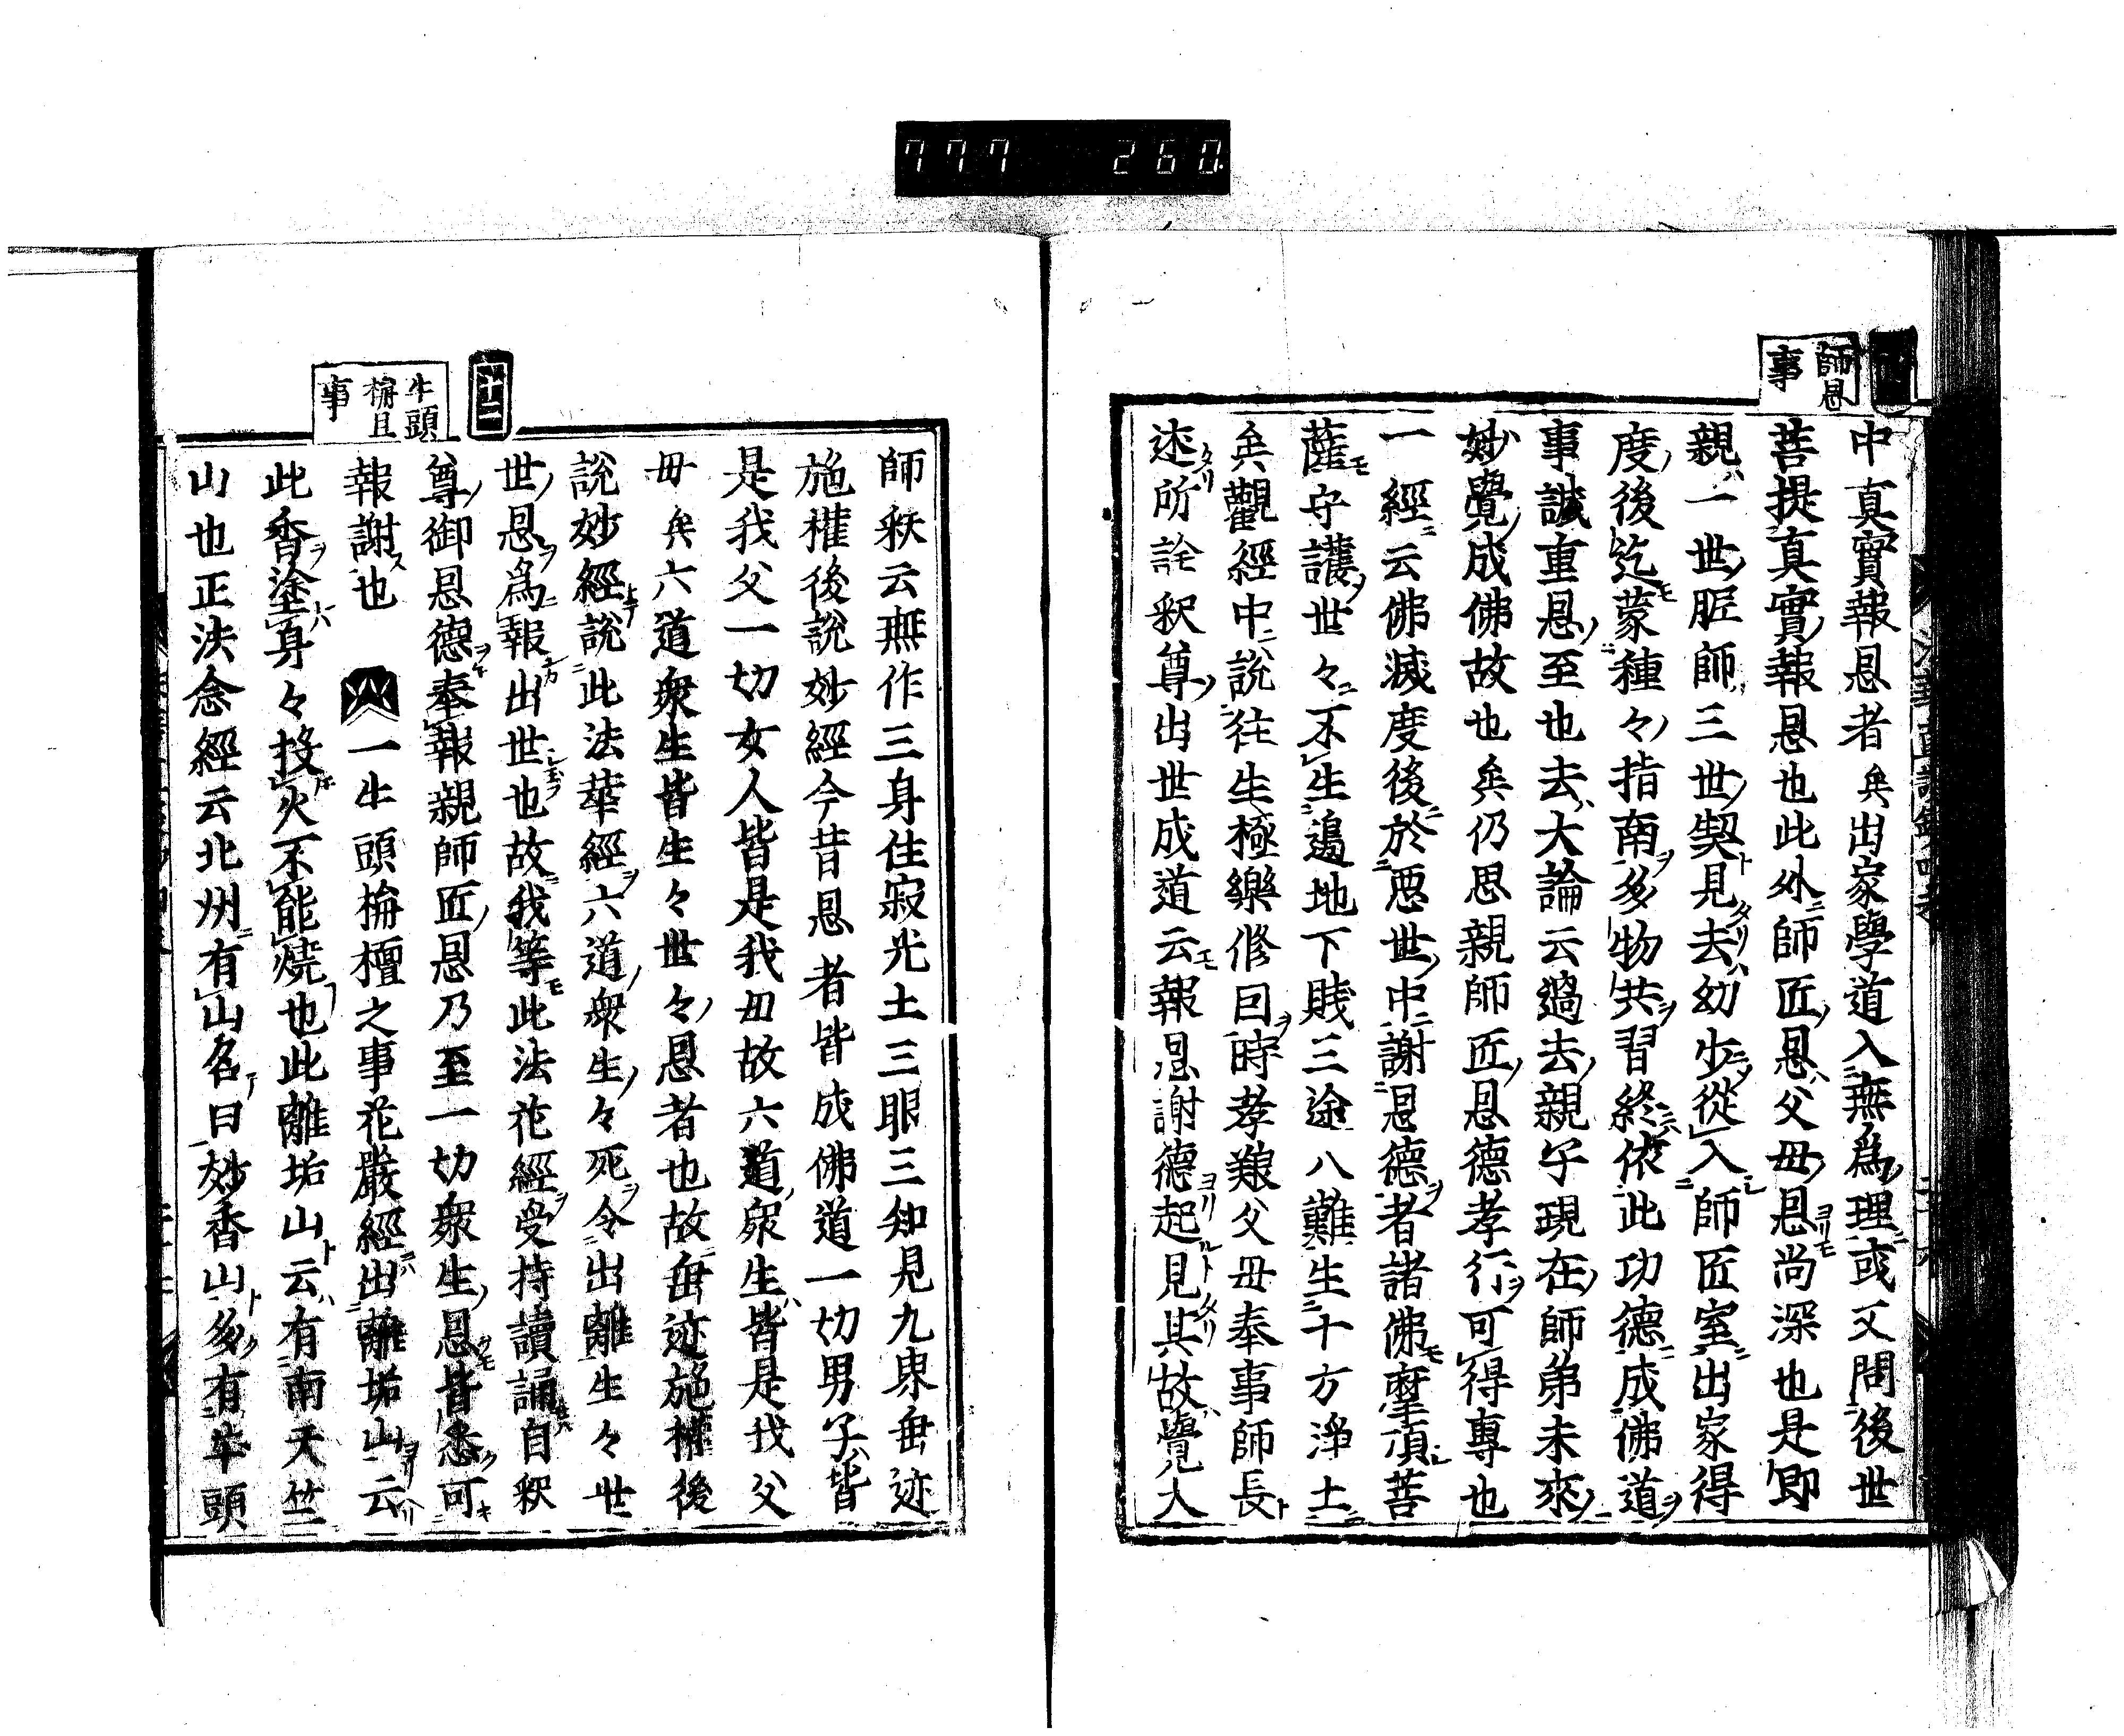 777 260
師恩
事
中真實報恩者矣出家學道入無爲理或又問後世
菩提真實報恩也此外師匠恩父毋恩ヨリモ尚深也是即
親一世師三世契見去幼少從入師匠室出家得
度後迄蒙種々指南多物共習終依此功德成佛道
事誠重恩至也去大論云過去親子現在師弟未來
妙覺成佛故也矣仍思親師匠恩德孝行可得專也
一經云佛滅度後於惡世中謝恩德者諸佛摩頂菩
薩守護世々不生邊地下賎三途八難生十方淨土
矣觀經中說往生極樂修因時孝養父毋奉事師長
述所詮釈尊出世成道云報恩謝德起見其故覺大
師釈云無作三身住寂光土三眼三知見九界垂迹
施權後說妙經今昔恩者皆成佛道一切男子皆
是我父一切女人皆是我毋故六道衆生皆是我父
毋矣六道衆生皆生々世々恩者也故垂迹施權後
說妙經說此法華經六道衆生々死令出離生々世
世恩爲報出世也故我等此法花經受持讀誦自釈
尊御恩德奉報親師匠恩乃至一切衆生恩皆悉可
報謝也 一牛頭栴檀之事花嚴經出離垢山云
此香塗身々投火不能燒也此離垢山云有南天竺
山也正法念經云北州有山名曰妙香山多有牛頭
十二
牛頭
栴旦
事